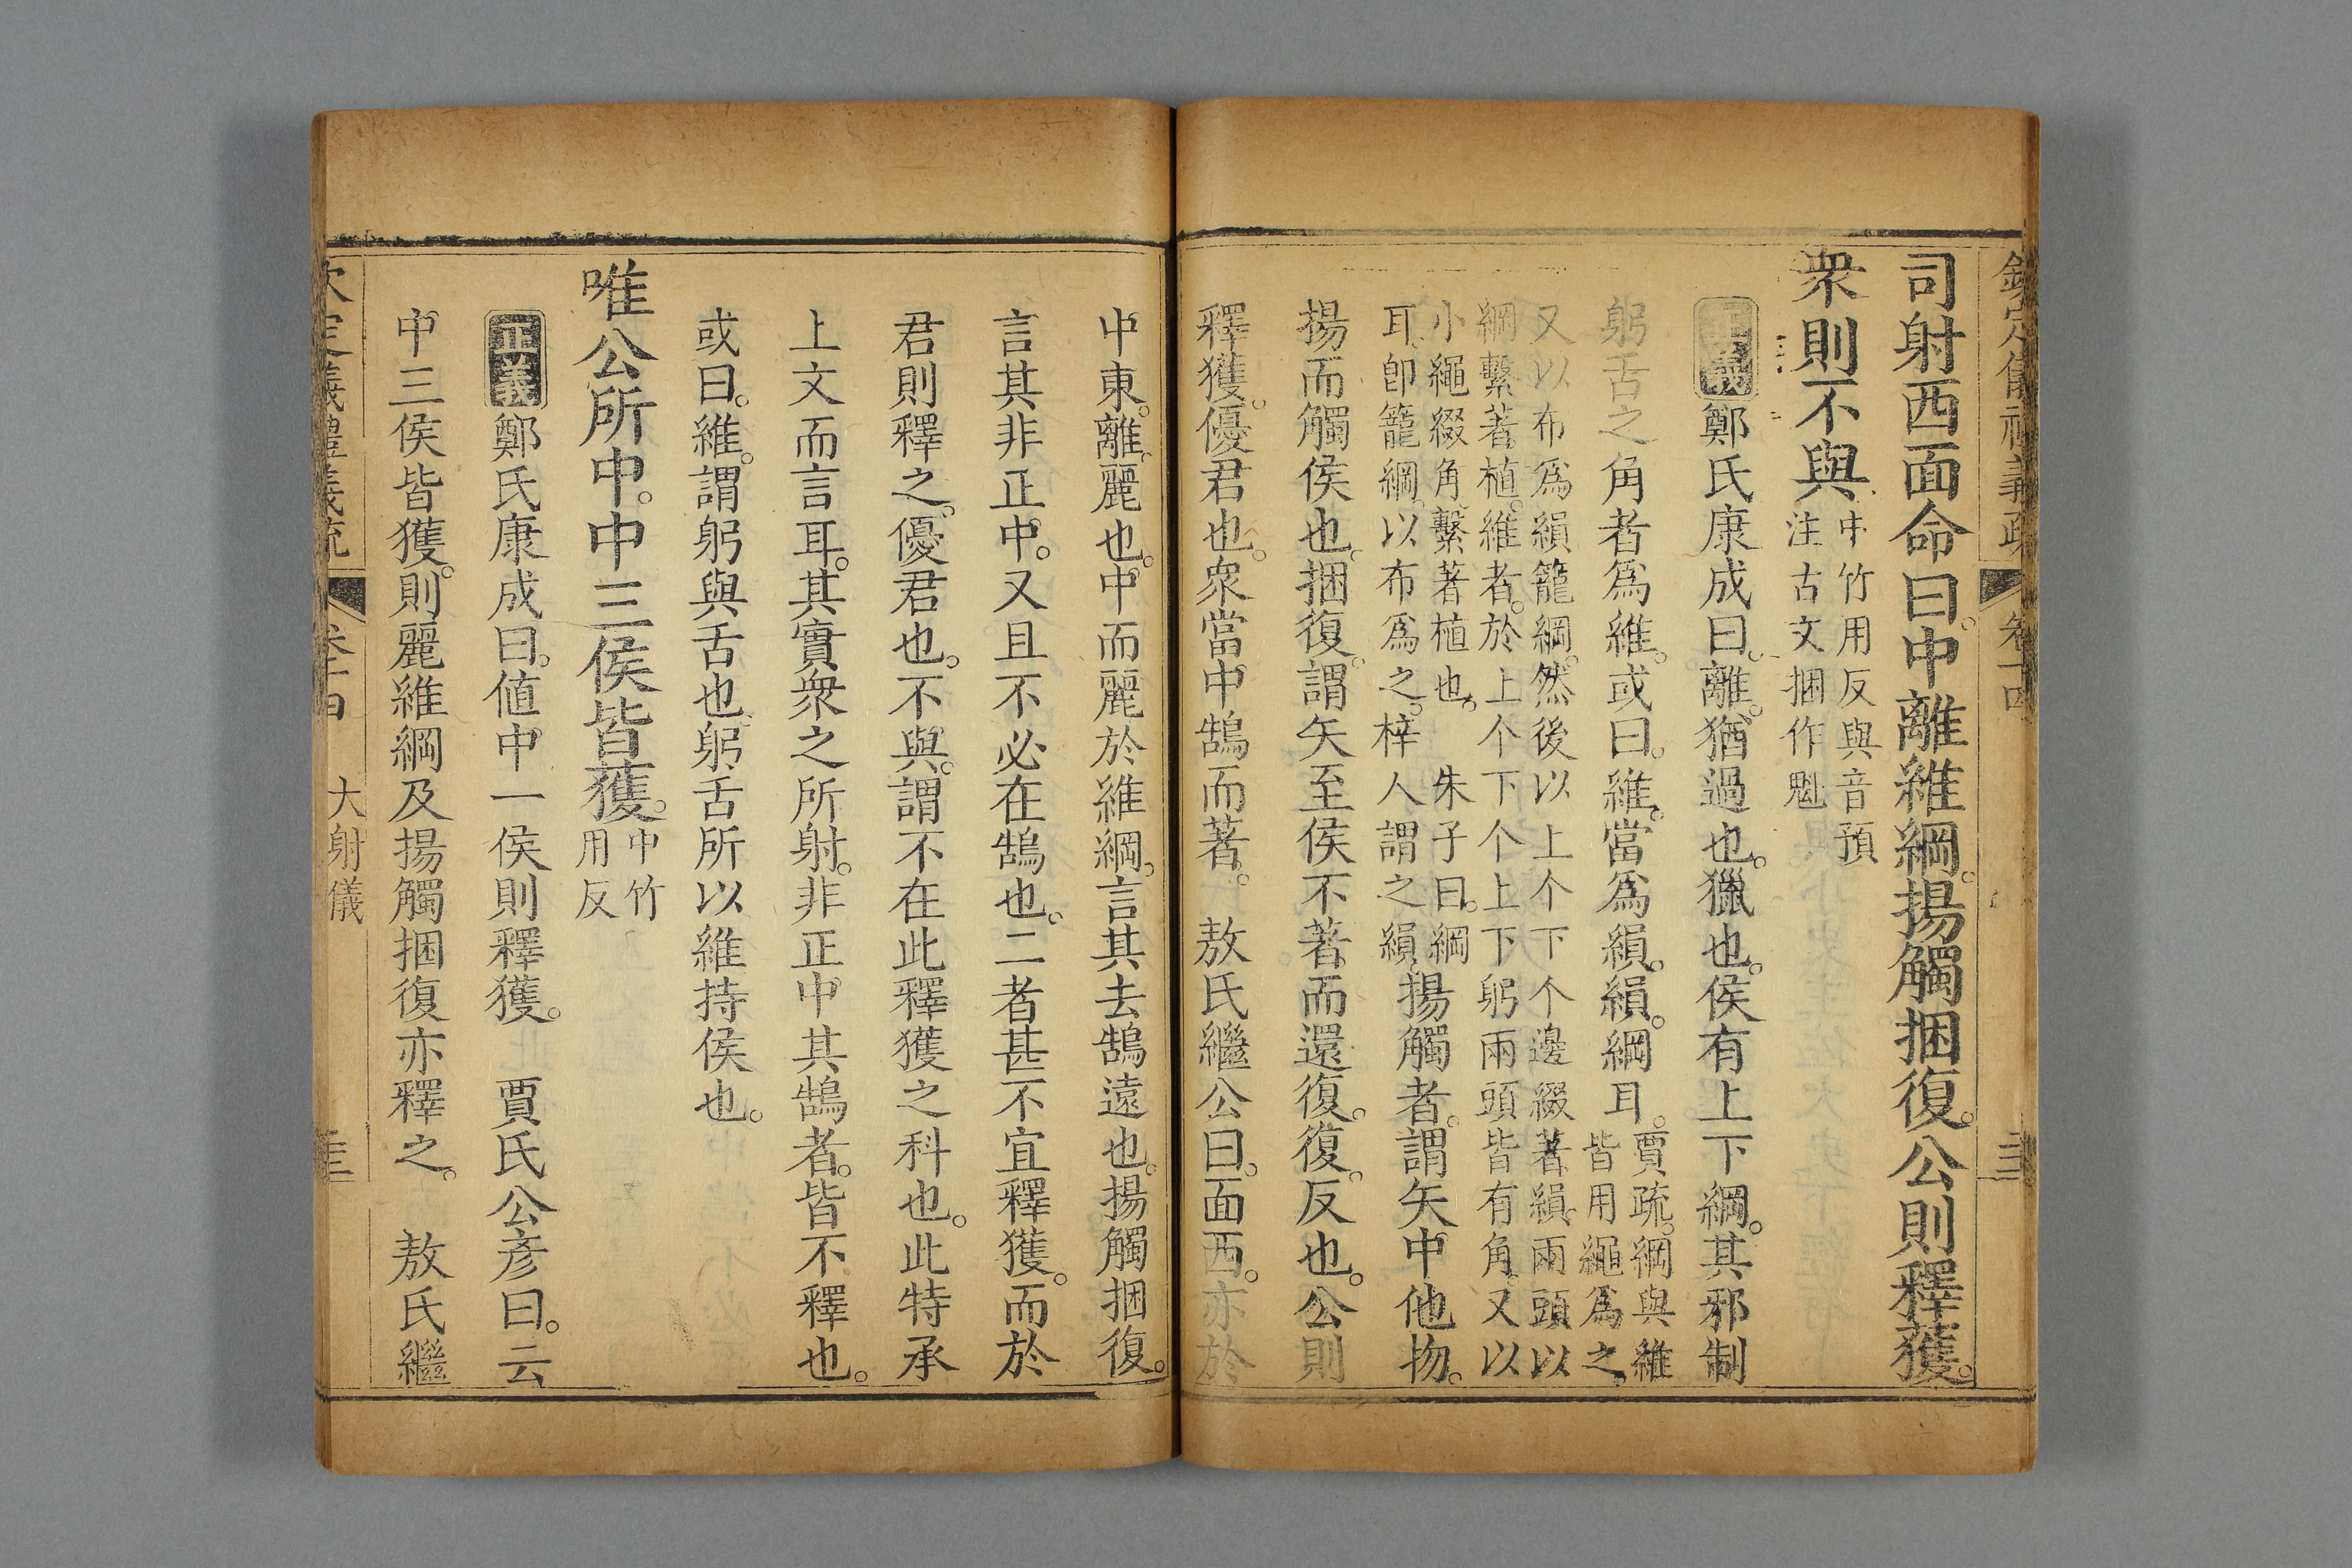 司射西面命曰。中離維綱。揚觸捆復。公則釋獲。
衆則不與。中竹用反與音預
注古文捆作魁
正義鄭氏康成曰。離。猶過也。獵也。侯有上下綱。其邪制
躬舌之角者爲維。或曰。維。當爲縜。縜。綱耳。賈疏。綱與維
皆用繩爲之。
又以布爲縜籠綱。然後以上个下个邊綴著縜。兩頭以
綱繫著植。維者。於上个下个上下躬兩頭皆有角。又以
小繩綴角繫著植也。 朱子曰。綱
耳。卽籠綱。以布爲之。梓人謂之縜。揚觸者。謂矢中他物。
揚而觸侯也。捆復。謂矢至侯不著而還復。復。反也。公則
釋獲。優君也。衆當中鵠而著。 敖氏繼公曰。面西。亦於
中東。離。麗也。中而麗於維綱。言其去鵠遠也。揚觸捆復。
言其非正中。又且不必在鵠也。二者甚不宜釋獲。而於
君則釋之。優君也。不與。謂不在此釋獲之科也。此特承
上文而言耳。其實衆之所射。非正中其鵠者。皆不釋也。
或曰。維。謂躬與舌也。躬舌所以維持侯也。
唯公所中。中三侯皆獲。中竹
用反
正義鄭氏康成曰。値中一侯則釋獲。 賈氏公彥曰。云
中三侯皆獲。則麗維綱及揚觸捆復亦釋之。 敖氏繼
欽定儀禮義疏 卷十四 大射儀